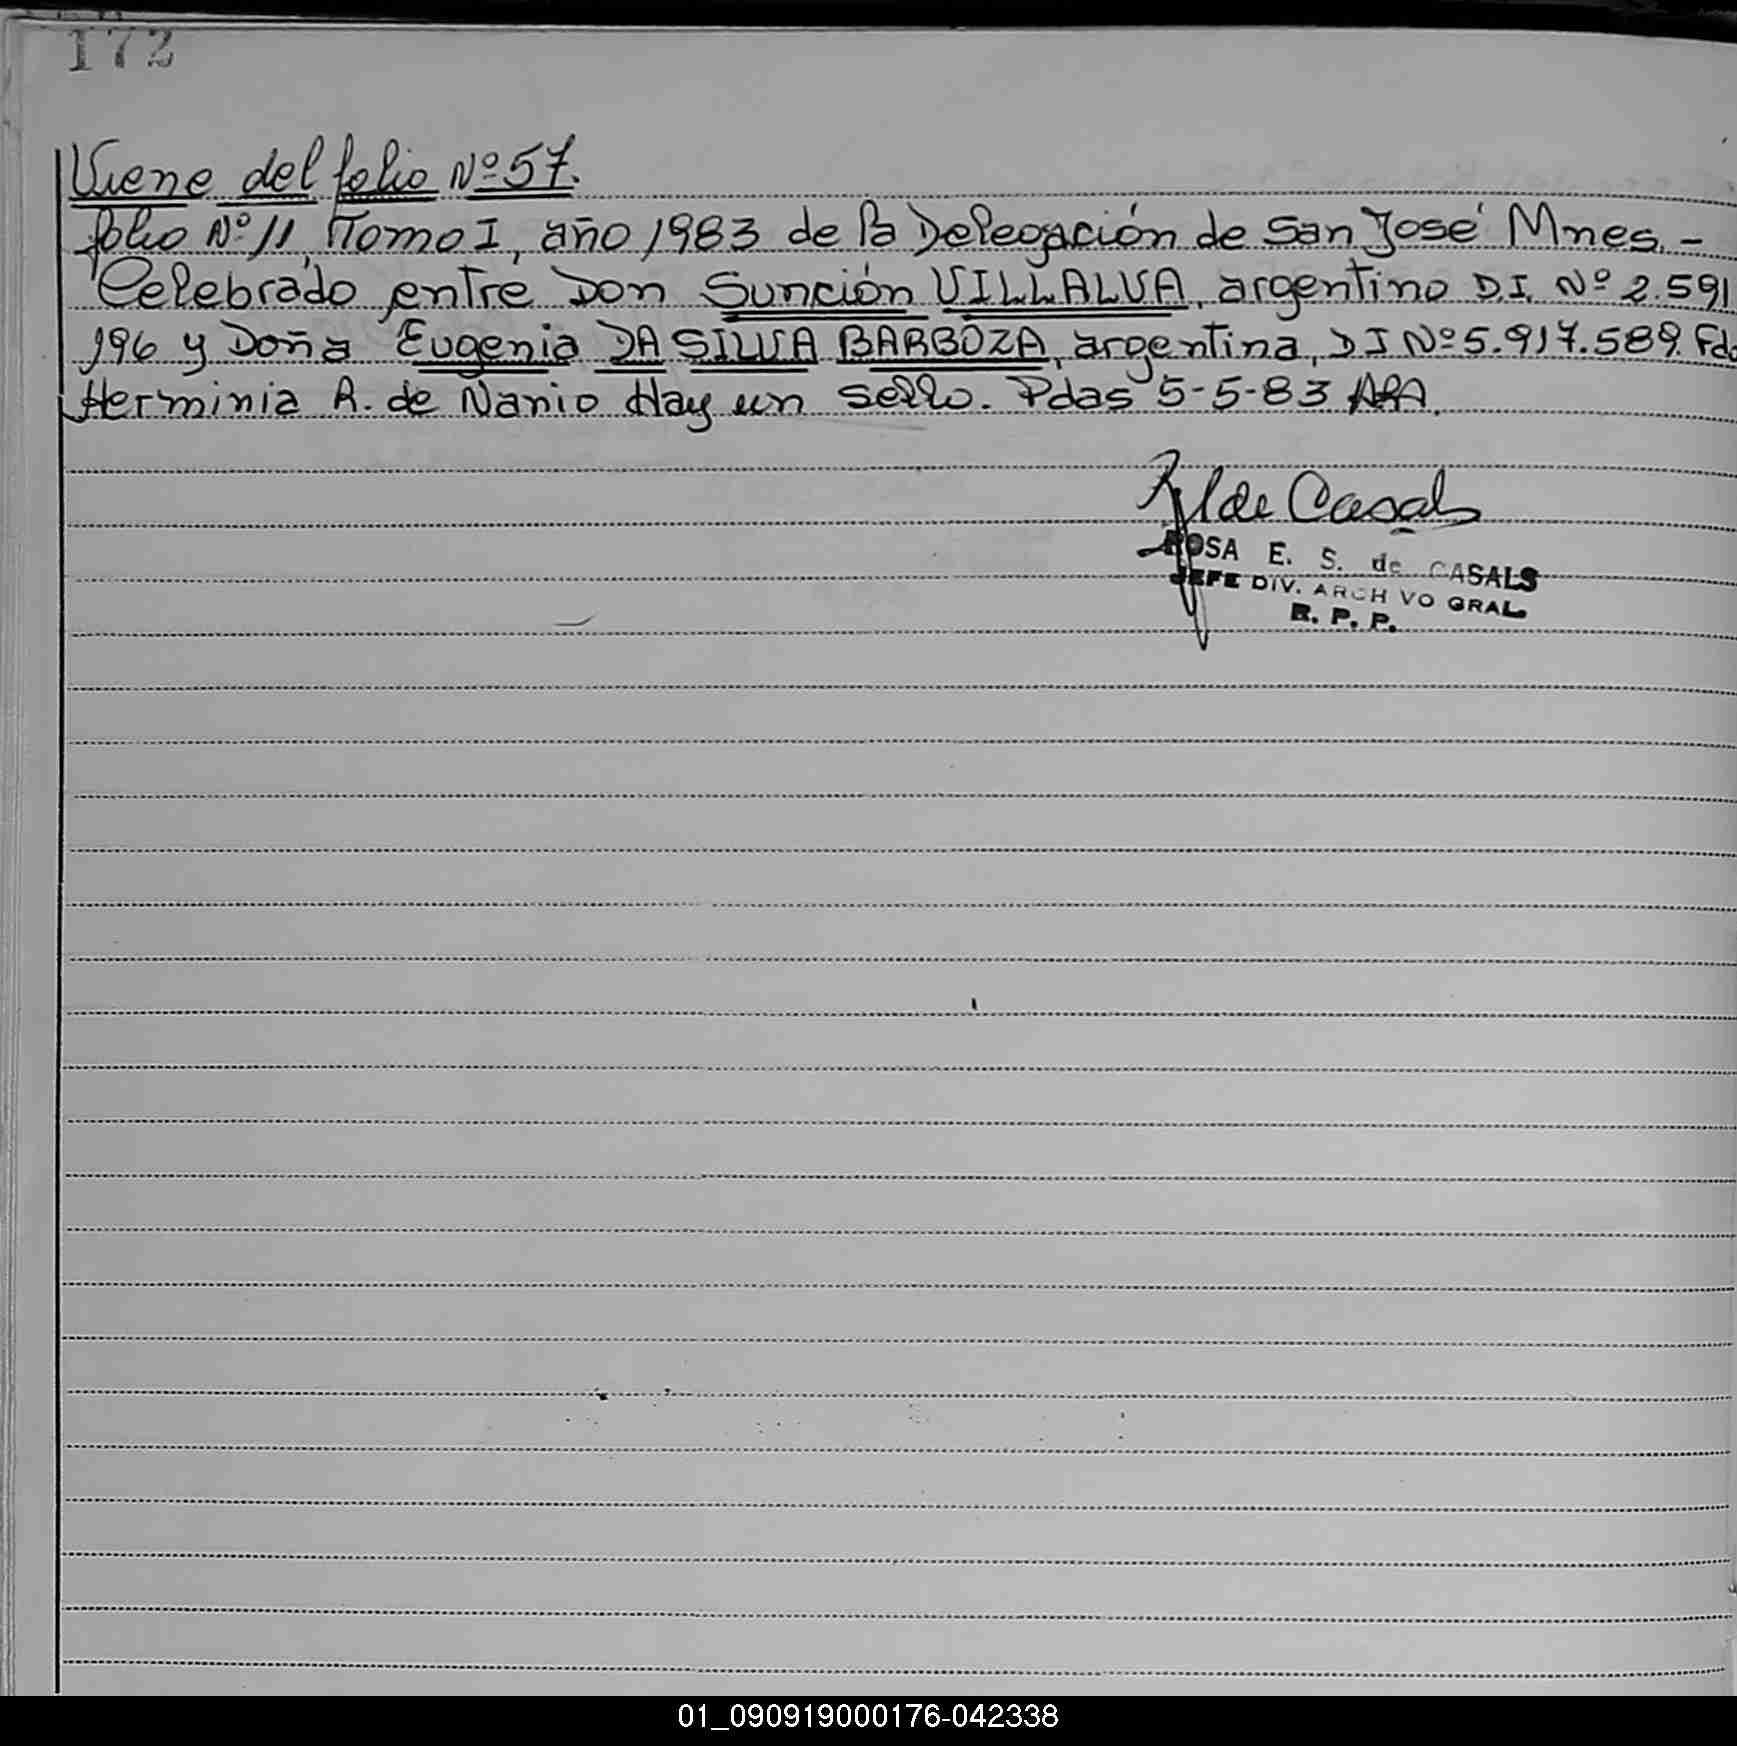 172
Viene del folio Nº 57.
folio Nº 11, Tomo I, año 1983 de la Delegación de San José Mnes. -
Celebrado entre Don Sunción VILLALVA, argentino D.I. Nº 2.591
196 y Doña Eugenia DA SILVA BARBOZA, argentina, D I Nº 5.917.589. Fdo
Herminia R. de Nanio Hay un sello. Pdas 5-5-83
de Casals
ROSA E. S. de CASALS
JEFE DIV. ARCH VO GRAL.
R. P. P.
01_090919000176-042338